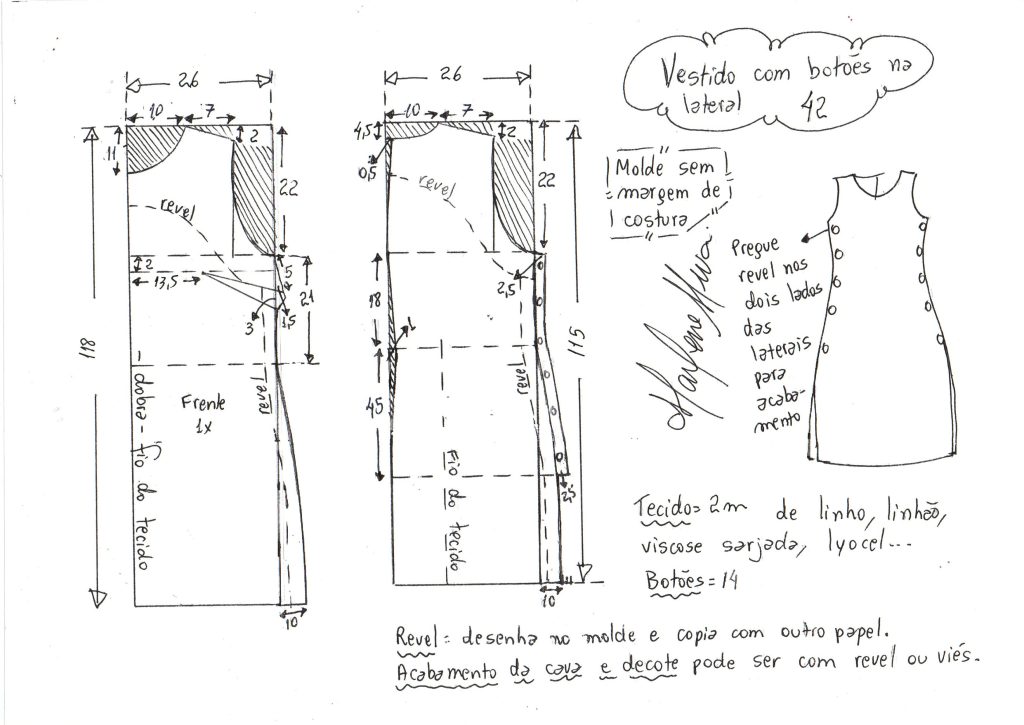 Vestido com botões na
lateral 42
Molde sem
margem de
costura
26
10 7
11
2
22
revel
2
13,5
5
3
1,5
21
118
revel
Frente
1x
dobra - fio do tecido
10
26
10 7
4,5
2
0,5
revel
22
2,5
18
1
115
45
revel
Fio do tecido
2,5
10
Pregue
revel nos
dois lados
das
laterais
para
acaba-
mento
Tecido = 2m de linho, linhão,
viscose sarjada, lyocel...
Botões = 14
Revel = desenha no molde e copia com outro papel.
Acabamento da cava e decote pode ser com revel ou viés.